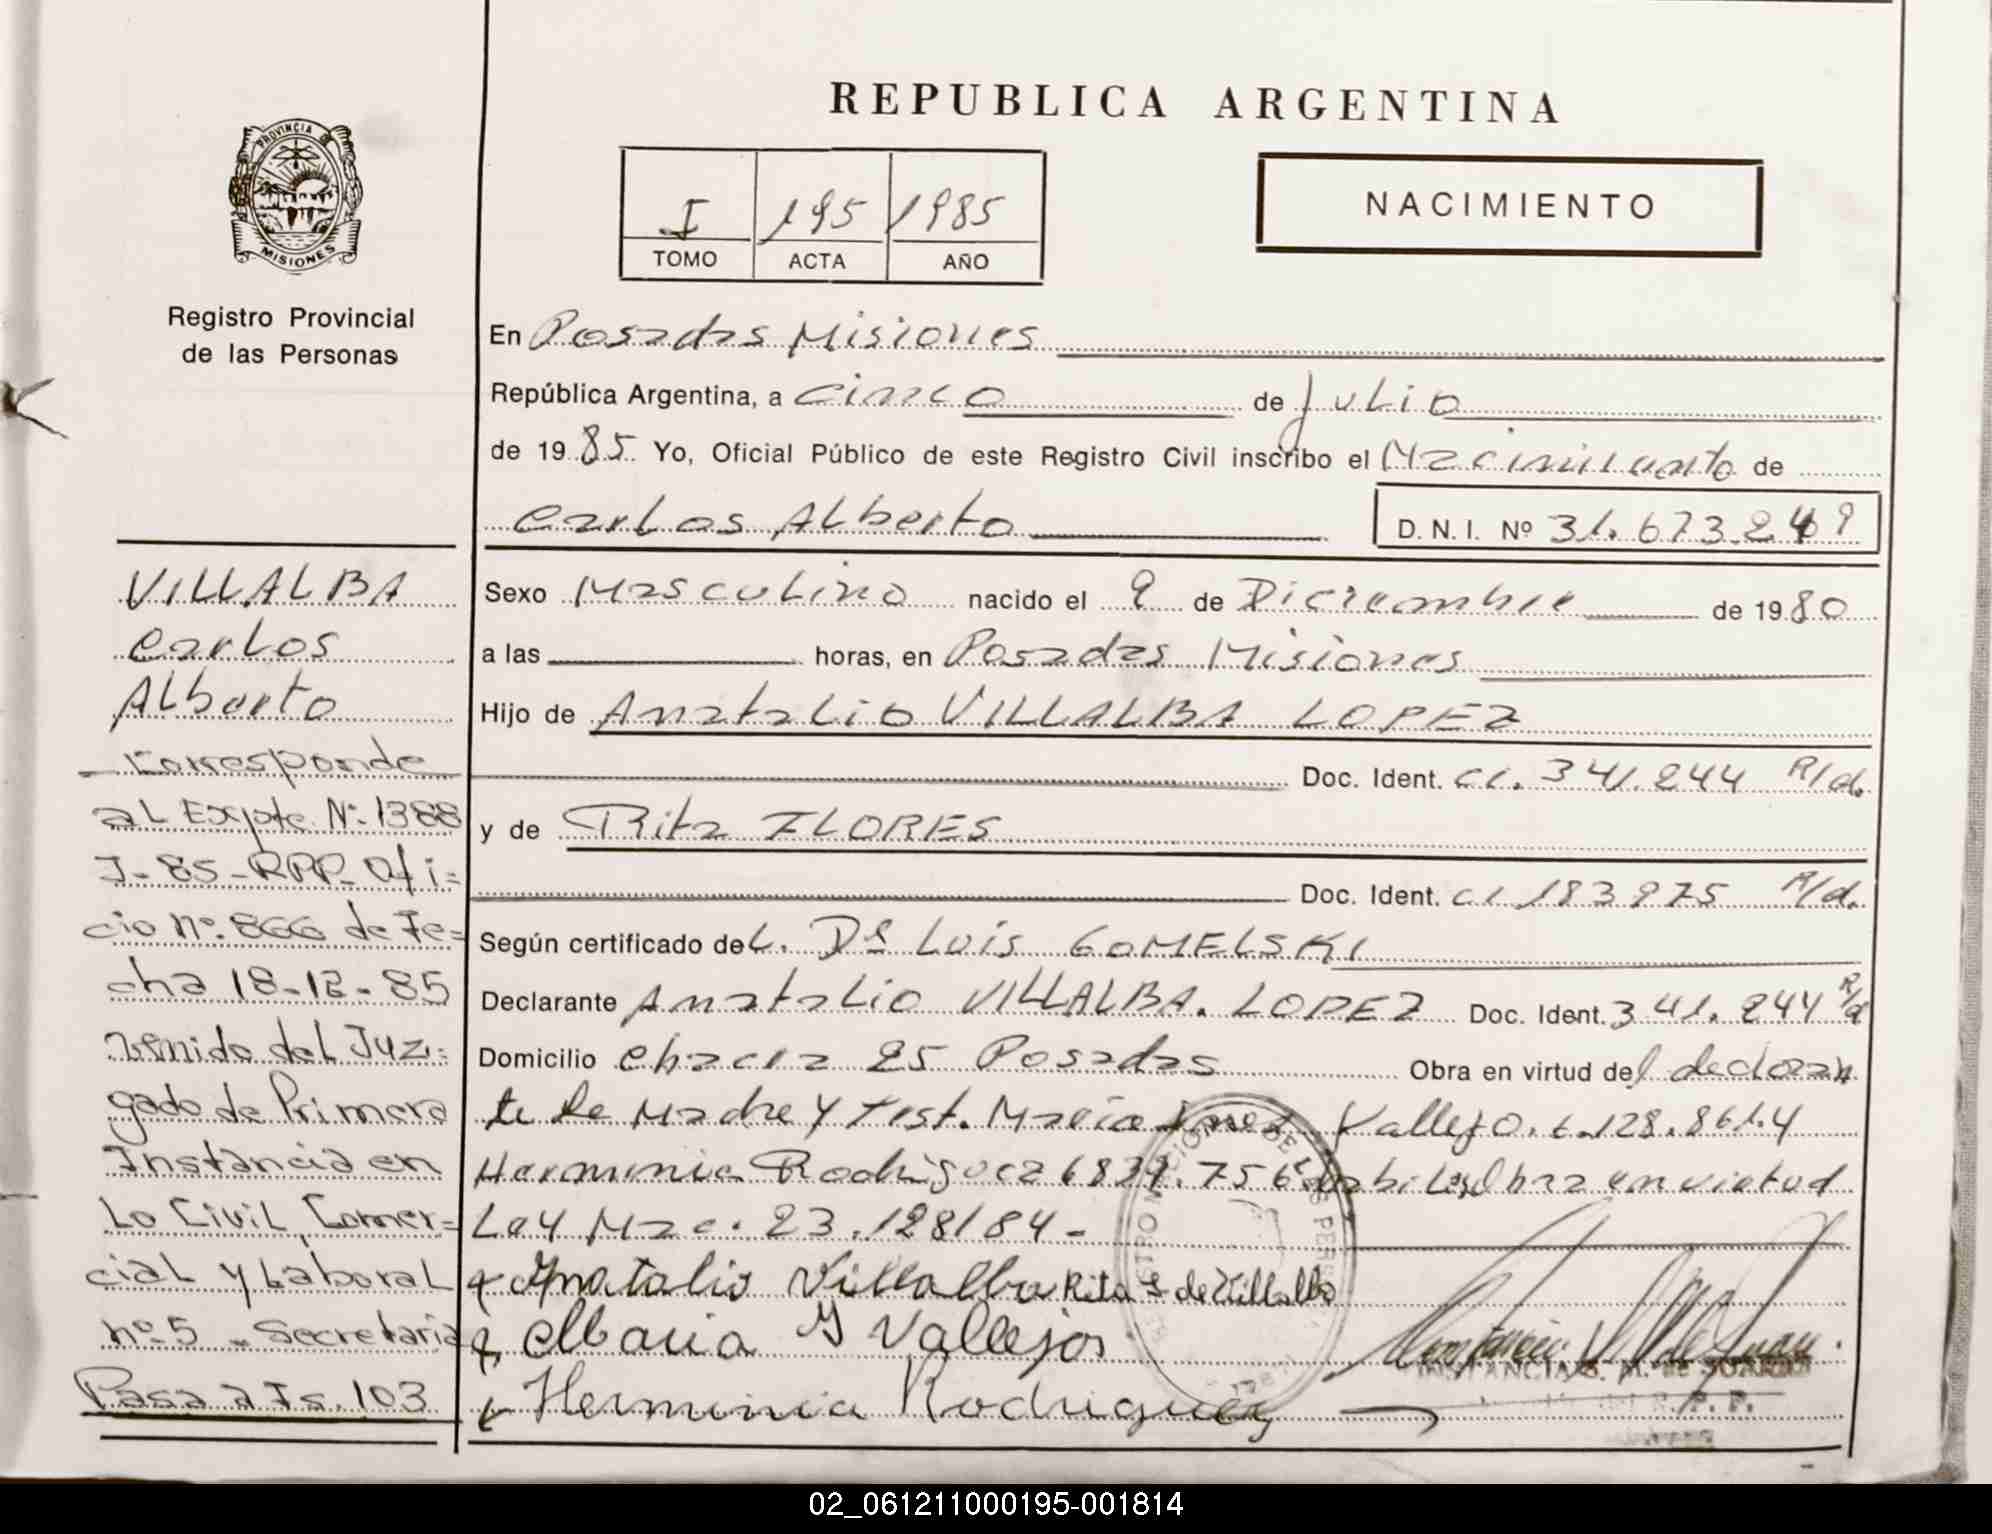 REPUBLICA ARGENTINA
PROVINCIA DE
MISIONES
I 195 1985
TOMO ACTA AÑO
NACIMIENTO
Registro Provincial
de las Personas
En Posadas Misiones
República Argentina, a cinco de Julio
de 1985 Yo, Oficial Público de este Registro Civil inscribo el Nacimiento de
Carlos Alberto D. N. I. Nº 31.673.249
Sexo Masculino nacido el 9 de Diciembre de 1980
a las horas, en Posadas Misiones
Hijo de Anatalio VILLALBA LOPEZ
Doc. Ident. CI. 341.244 R/d.
y de Rita FLORES
Doc. Ident. CI 183975 R/d.
Según certificado del. Dr Luis GOMELSKI
Declarante Anatalio VILLALBA. LOPEZ Doc. Ident. 341.244 R/d
Domicilio chacra 25 Posadas Obra en virtud del declaran
te la Madre y test. María Vallejo. 6.128.861.y
Herminia Rodriguez 6839.756 habiles Obra en virtud
Ley Nac. 23.128/84-
Anatalio Villalba Rita F de Villalba
Maria Y Vallejos
Herminia Rodriguez
VILLALBA
Carlos
Alberto
Corresponde
al Expte Nº 1388
J-85-RPP-Ofi=
cio nº 866 de Fe=
cha 18-12-85
venido del Juz=
gado de Primera
Instancia en
Lo Civil, Comer=
cial y Laboral
nº 5 - Secretaria
Pasa a Fs. 103
R. P. P.
02_061211000195-001814